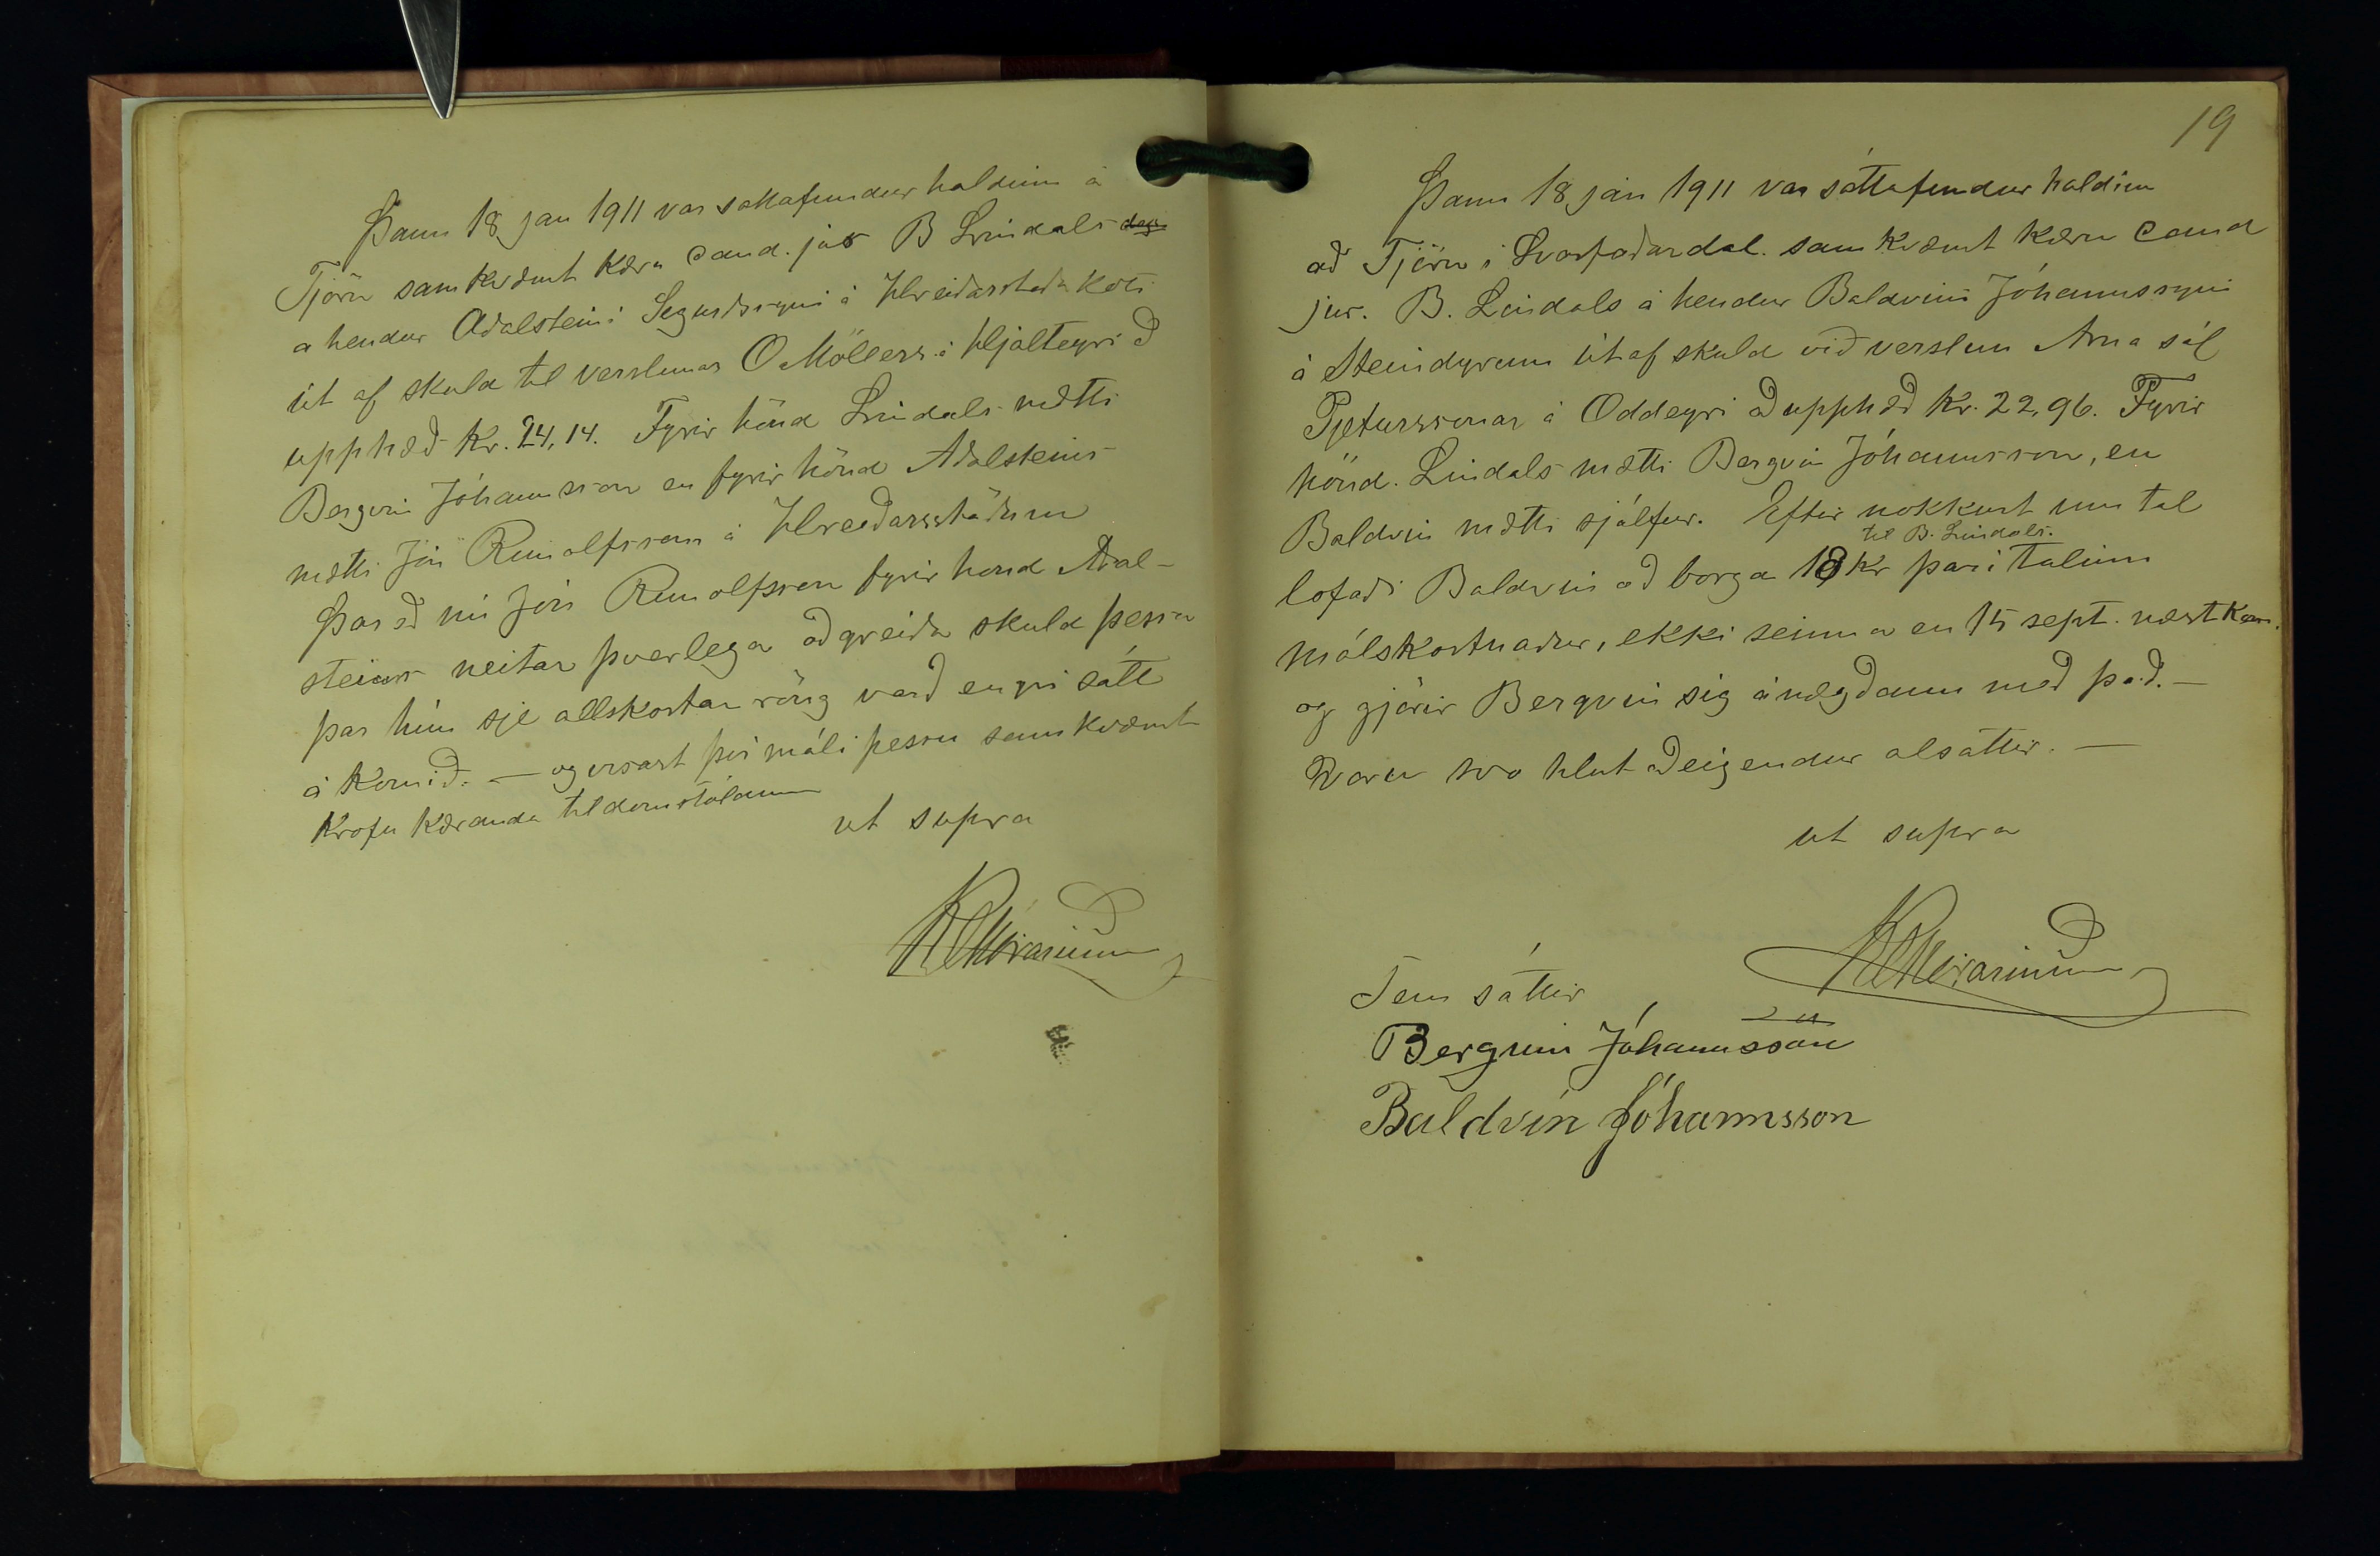 Þann 18 jan 1911 var sáttafundur haldinn á
Tjörn samkvæmt kæru cand. jur B Lindals dags
a hendur Aðalsteini Sigurðssyni á Hreiðarsstaðakoti
út af skuld til verslunar O Möllers á Hjalteyri að
upphæð kr. 24,14. Fyrir hönd Lindals mætti
Bergvin Jóhannsson en fyrir hönd Aðalsteins
mætti Jón Runolfsson á Hreiðarsstöðum
Þar eð nú Jón Runolfsson fyrir hönd Aðal-
steins neitar þverlega að greiða skuld þessa
þar hún sje allskostar röng varð engri sátt
á komið. — og vísast því máli þessu samkvæmt
Krofu kæranda til domstólanna
ut supra
19
Þann 18 jan 1911 var sáttafundur haldinn
að Tjörn i Svarfaðardal. samkvæmt kæru cand
jur. B. Lindals á hendur Baldvini Jóhannssyni
á Steindyrum út af skuld við verslun Árna sál
Pjeturssonar á Oddeyri að upphæð kr. 22,96. Fyrir
hönd. Lindals mætti Bergvin Jóhannsson, en
Baldvin mætti sjálfur. Eftir nokkurt um tal
til B. Lindals.
lofaði Baldvin að borga 18 kr þar í talinn
málskostnaður, ekki seinna en 15 sept. næst kom.
og gjörir Bergvin sig ánægðann með það. —
Voru svo hlut aðeigendur alsáttir. —
ut supra
Sem sáttir
Bergvin Jóhannsson
Baldvin Jóhannsson